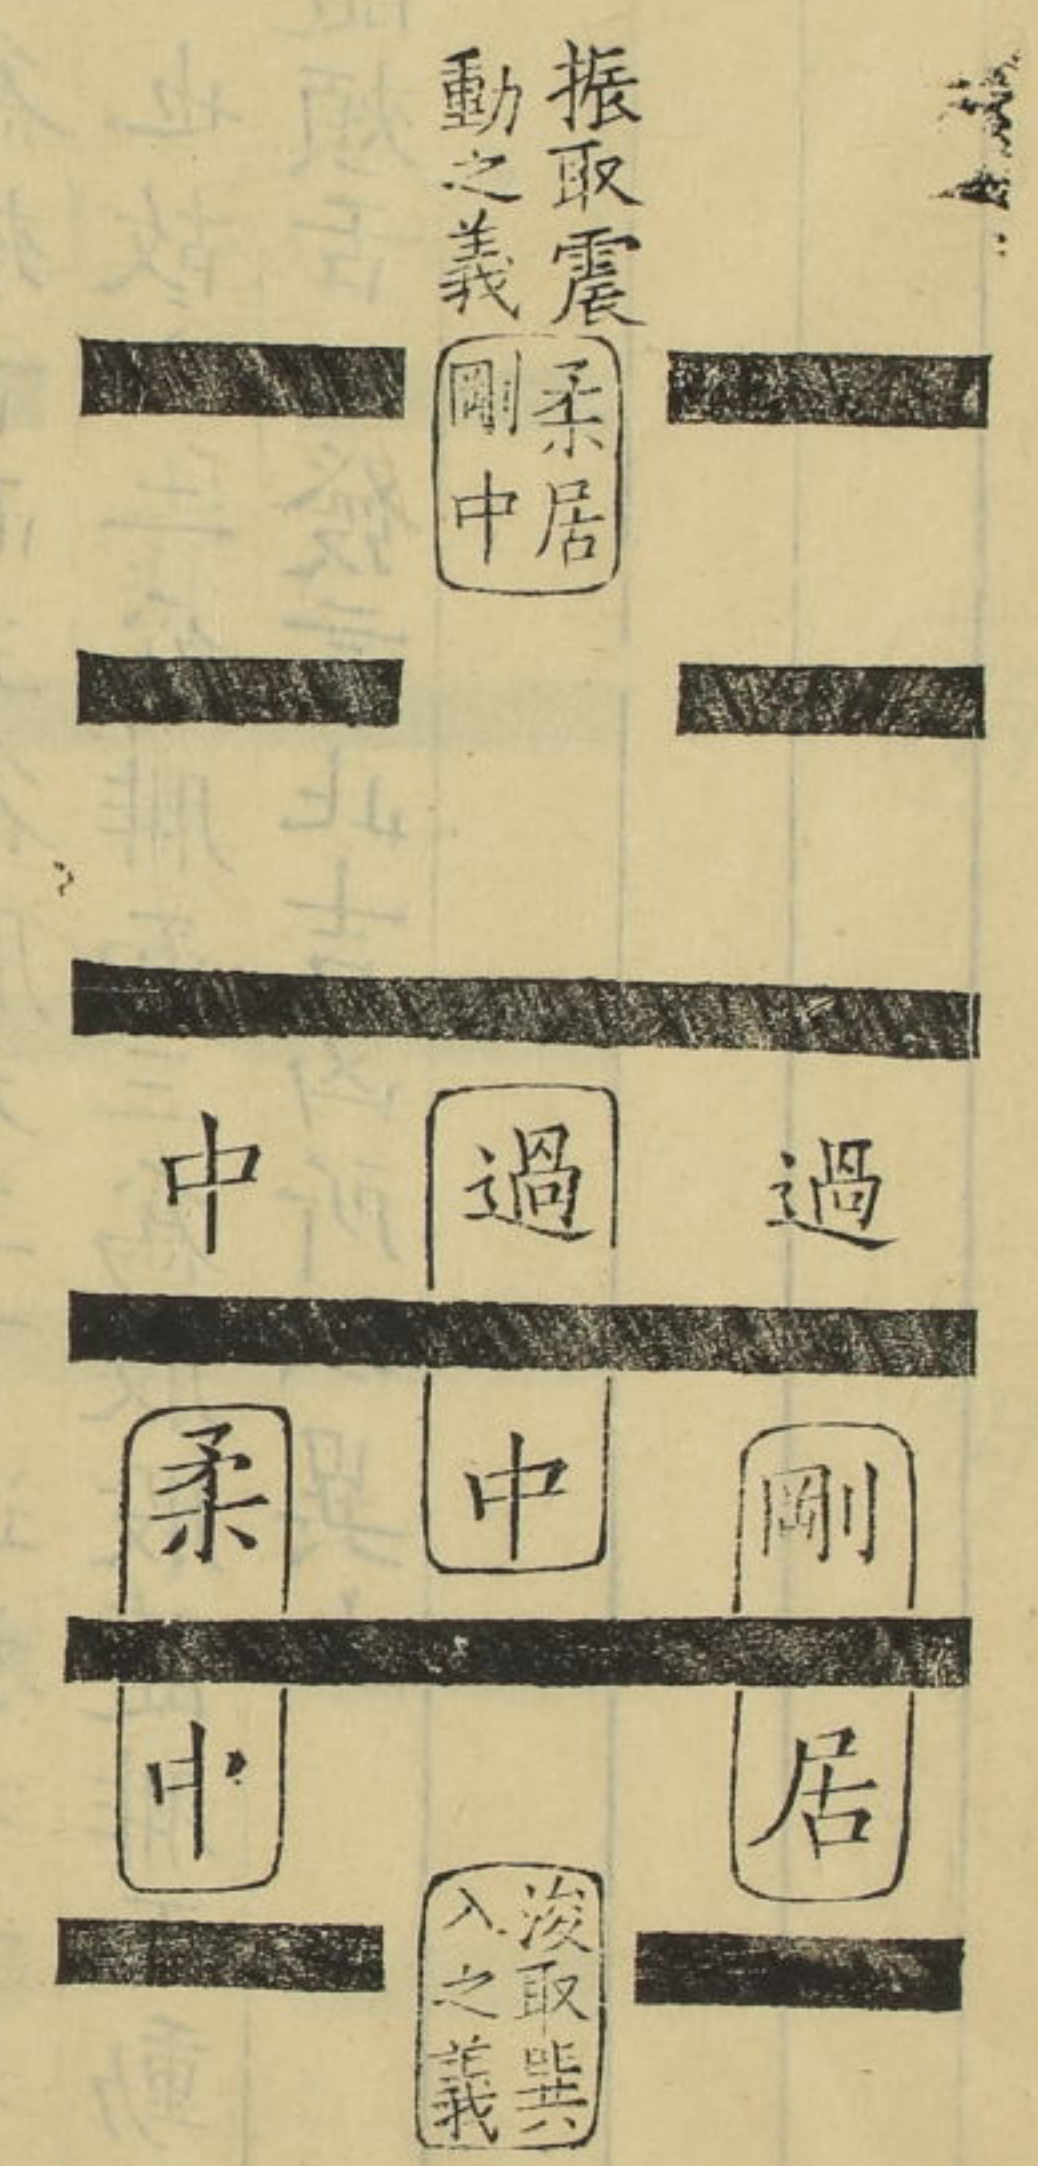 振取震
動之義
柔居
剛中
過
過
中
剛
中
柔
居
中
浚取巽
入之義